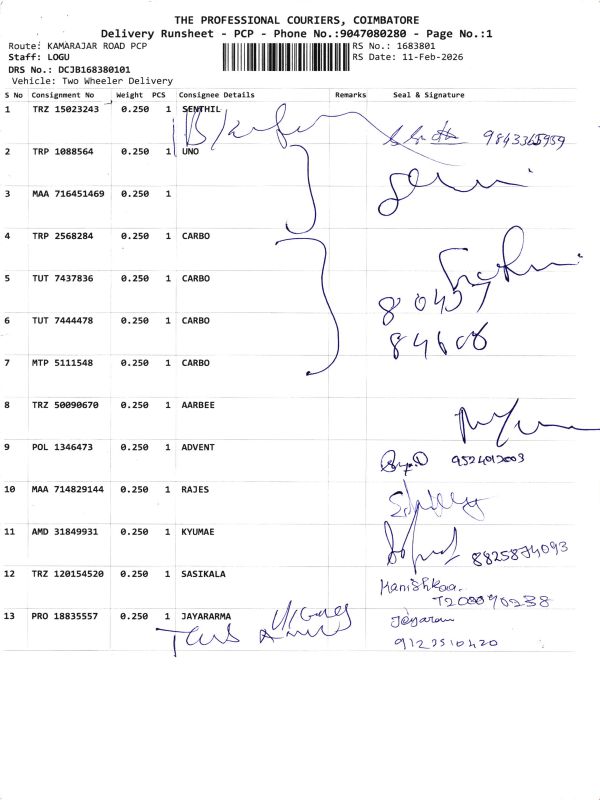 THE PROFESSIONAL COURIERS, COIMBATORE
Delivery Runsheet - PCP - Phone No.:9047080280 - Page No.:1
Route: KAMARAJAR ROAD PCP RS No.: 1683801
Staff: LOGU RS Date: 11-Feb-2026
DRS No.: DCJB168380101
Vehicle: Two Wheeler Delivery
S No Consignment No Weight PCS Consignee Details Remarks Seal & Signature
1 TRZ 15023243 0.250 1 SENTHIL
2 TRP 1088564 0.250 1 UNO
3 MAA 716451469 0.250 1
4 TRP 2568284 0.250 1 CARBO
5 TUT 7437836 0.250 1 CARBO
6 TUT 7444478 0.250 1 CARBO
7 MTP 5111548 0.250 1 CARBO
8 TRZ 50090670 0.250 1 AARBEE
9 POL 1346473 0.250 1 ADVENT
10 MAA 714829144 0.250 1 RAJES
11 AMD 31849931 0.250 1 KYUMAE
12 TRZ 120154520 0.250 1 SASIKALA Kanishkaa.
13 PRO 18835557 0.250 1 JAYARARMA Jayaram
9123510420